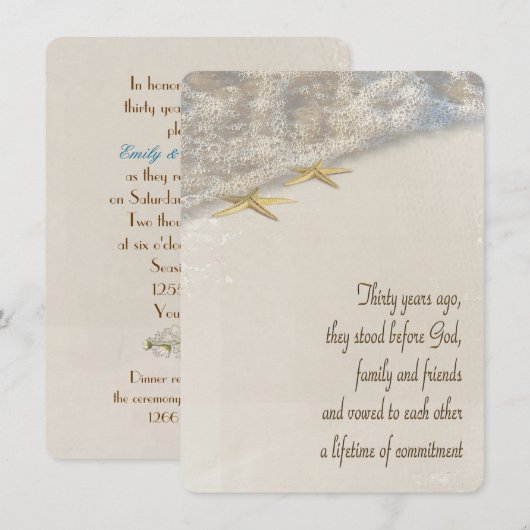 In honor
thirty yea
ple
Emily &
as they re
on Saturda
Two thou
at six o'cloc
Seasi
1255
You
Dinner re
the ceremony
1266
Thirty years ago,
they stood before God,
family and friends
and vowed to each other
a lifetime of commitment